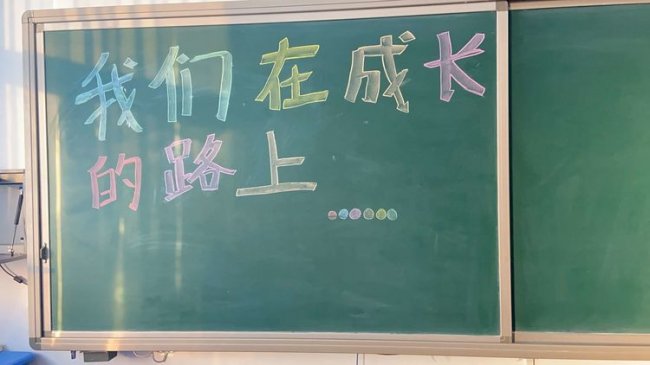 我们在成长
的路上
……